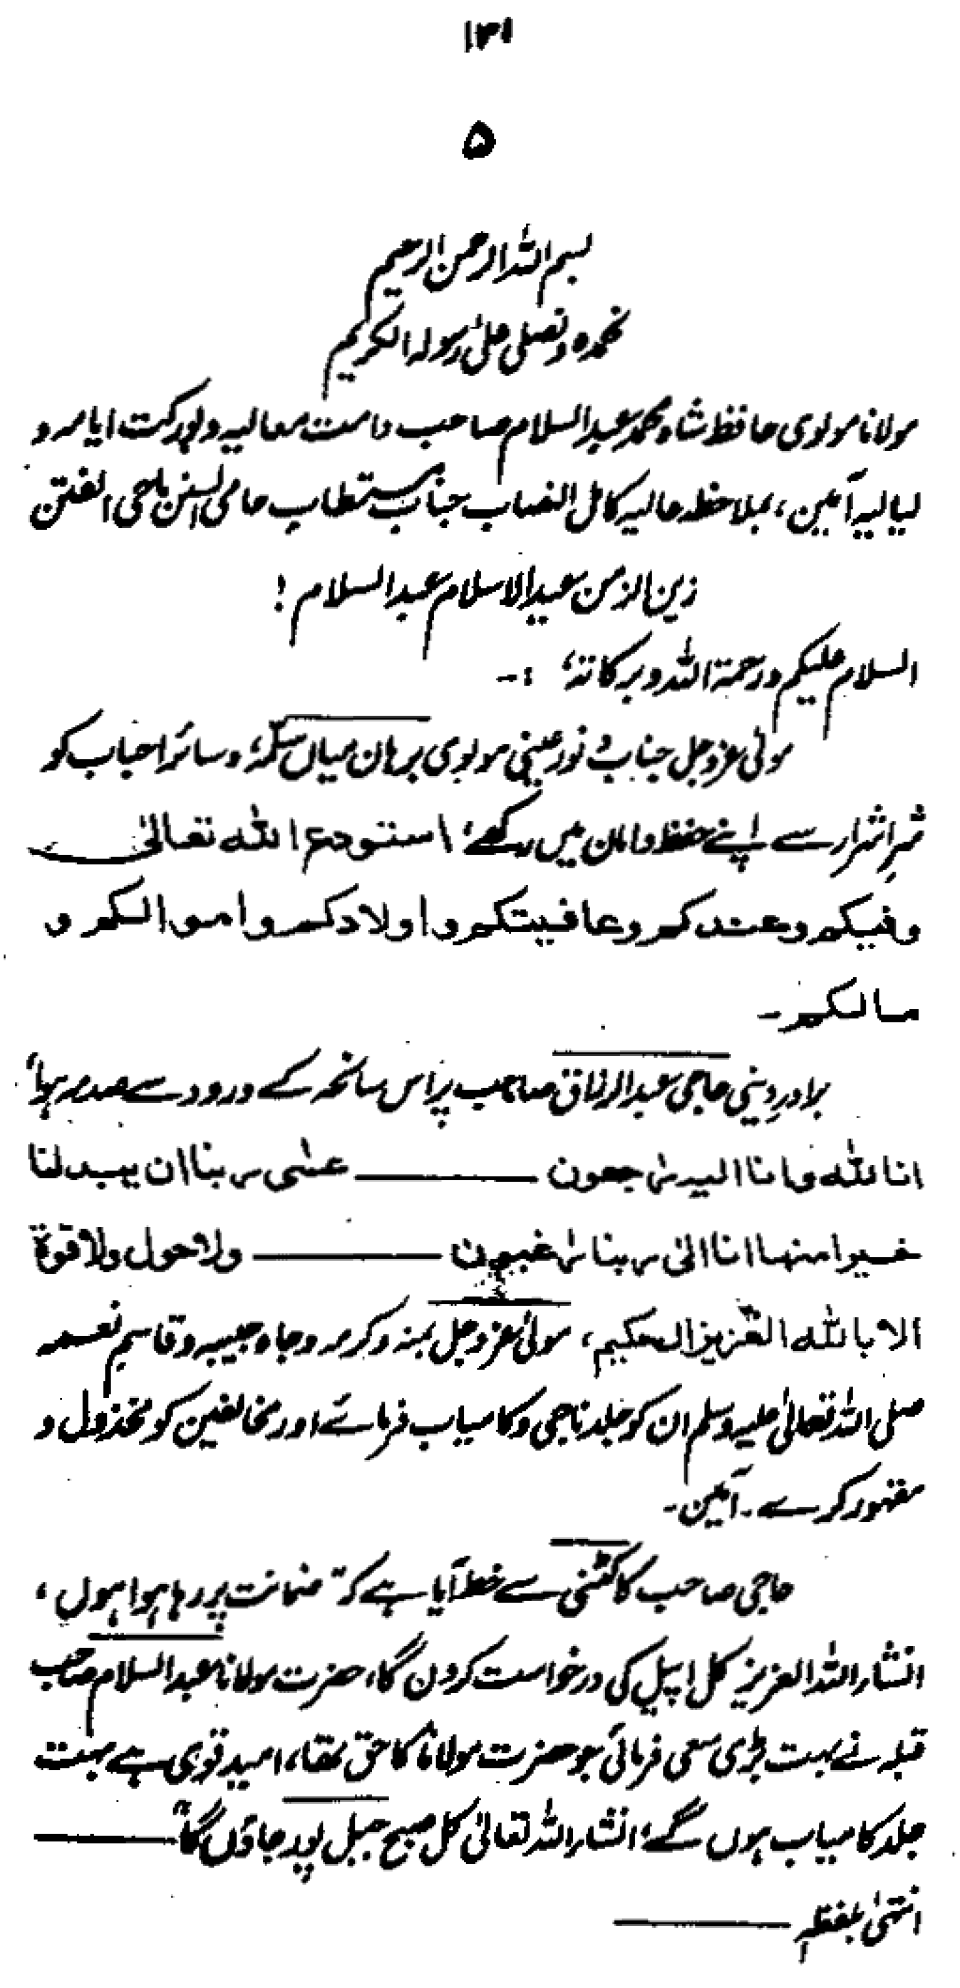 ۱۳۱
۵
بسم اللہ الرحمن الرحیم
نحمدہ ونصلی علیٰ رسولہ الکریم
مولانا مولوی حافظ شاہ محمد عبدالسلام صاحب دامت معالیہ وبورکت ایامہ و
لیالیہ آمین، بملاحظہ عالیہ کامل النصاب جناب مستطاب حامی السنن ماحی الفتن
زین الزمن عید الاسلام عبدالسلام !
السلام علیکم ورحمۃ اللہ وبرکاتہٗ :-
مولیٰ عزوجل جناب و نور عینی مولوی برہان میاں سلّمہٗ، وسائر احباب کو
شرِ اشرار سے اپنے حفظ وامان میں رکھے، استودع اللہ تعالیٰ
وفیکم وعندکم وعافیتکم واولادکم واموالکم و
مالکم ۔
برادرِ دینی حاجی عبدالرزاق صاحب پر اس سانحہ کے ورود سے صدمہ ہوا،
انا للہ وانا الیہ رٰجعون ــــــ عسٰی ربنا ان یبدلنا
خیرا منھا انا الیٰ ربنا رٰغبون ــــــ ولاحول ولاقوۃ
الا باللہ العزیز الحکیم، مولیٰ عزوجل بمنہ وکرمہ وجاہ حبیبہ وقاسم نعمہ
صلی اللہ تعالیٰ علیہ وسلم ان کو جلد ناجی وکامیاب فرمائے اور مخالفین کو مخذول و
مقہور کرے ۔ آمین ۔
حاجی صاحب کا کٹنی سے خط آیا ہے کہ "ضمانت پر رہا ہوا ہوں،
انشاء اللہ العزیز کل اپیل کی درخواست کردوں گا، حضرت مولانا عبدالسلام صاحب
قبلہ نے بہت بڑی سعی فرمائی جو حضرت مولانا کا حق تھا، امید قوی ہے بہت
جلد کامیاب ہوں گے، انشاء اللہ تعالیٰ کل صبح جبل پور جاؤں گا" ــــــ
انتہیٰ بلفظہٖ ــــــ